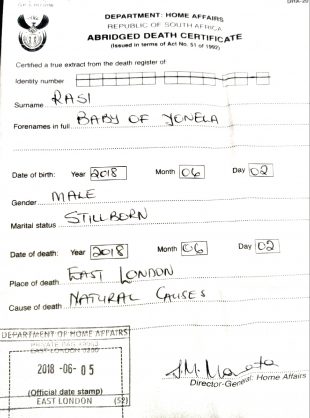 DHA-20
DEPARTMENT: HOME AFFAIRS
REPUBLIC OF SOUTH AFRICA
ABRIDGED DEATH CERTIFICATE
(Issued in terms of Act No. 51 of 1992)
Certified a true extract from the death register of:
Identity number
Surname RASI
Forenames in full BABY OF YONELA
Date of birth: Year 2018 Month 06 Day 02
Gender MALE
Marital status STILLBORN
Date of death: Year 2018 Month 06 Day 02
Place of death EAST LONDON
Cause of death NATURAL CAUSES
DEPARTMENT OF HOME AFFAIRS
PRIVATE BAG
EAST LONDON 5200
2018 -06- 05
(Official date stamp)
EAST LONDON (52)
Director-General: Home Affairs